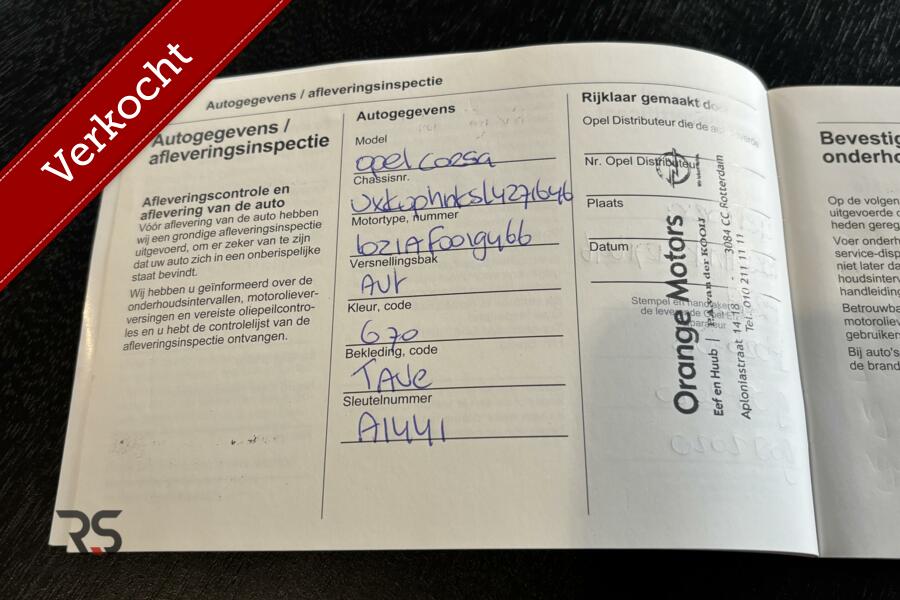 Verkocht
Autogegevens / afleveringsinspectie
Autogegevens /
afleveringsinspectie
Afleveringscontrole en
aflevering van de auto
Vóór aflevering van de auto hebben
wij een grondige afleveringsinspectie
uitgevoerd, om er zeker van te zijn
dat uw auto zich in een onberispelijke
staat bevindt.
Wij hebben u geïnformeerd over de
onderhoudsintervallen, motoroliever-
versingen en vereiste oliepeilcontro-
les en u hebt de controlelijst van de
afleveringsinspectie ontvangen.
Autogegevens
Model
opel corsa
Chassisnr.
Motortype, nummer
Versnellingsbak
AUT
Kleur, code
G70
Bekleding, code
TAVE
Sleutelnummer
A1441
Rijklaar gemaakt
Opel Distributeur die de
Nr. Opel Distributeur
Plaats
Datum
Stempel en
Orange Motors
Eef en Huub | P.A. van der KOOIJ
Aploniastraat 14-18 - 3084 CC Rotterdam
Tel. 010 211 11 11
Bevestig
onderho
Op de volgen
uitgevoerde
heden gereg
Voer onderh
service-disp
niet later da
houdsinterv
handleiding
Betrouwba
motoroliev
gebruiken
Bij auto's
de brand
RS